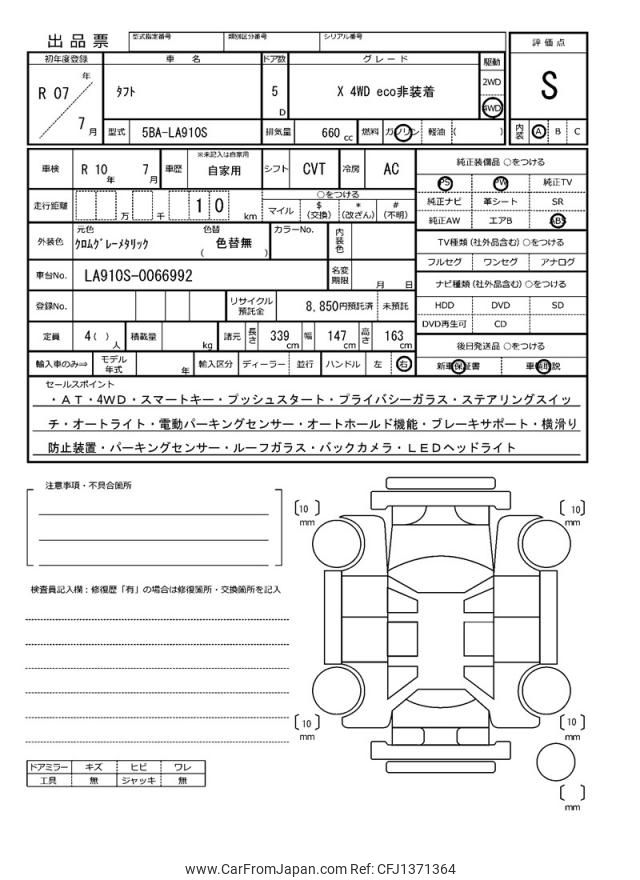 出品票 型式指定番号 類別区分番号 シリアル番号
評価点
S
内装 A B C
初年度登録 車名 ドア数 グレード 駆動
R 07 年 7 月
タフト 5 D X 4WD eco非装着 2WD 4WD
型式 5BA-LA910S 排気量 660 cc 燃料 ガソリン 軽油 ( )
車検 R 10 年 7 月 車歴 ※未記入は自家用 自家用 シフト CVT 冷房 AC
走行距離 万 千 1 0 km
○をつける
マイル $ (交換) * (改ざん) # (不明)
外装色 元色 クロムグレーメタリック 色替 ( 色替無 ) カラーNo. 内装色
車台No. LA910S-0066992 名変期限 月 日
登録No. リサイクル預託金 8,850円預託済 未預託
定員 4( ) 人 積載量 kg 諸元 長さ 339 cm 幅 147 cm 高さ 163 cm
輸入車のみ⇒ モデル年式 年 輸入区分 ディーラー 並行 ハンドル 左 右
純正装備品 ○をつける
PS PW 純正TV
純正ナビ 革シート SR
純正AW エアB ABS
TV種類 (社外品含む) ○をつける
フルセグ ワンセグ アナログ
ナビ種類 (社外品含む) ○をつける
HDD DVD SD
DVD再生可 CD
後日発送品 ○をつける
新車保証書 車輌取説
セールスポイント
・ＡＴ・４ＷＤ・スマートキー・プッシュスタート・プライバシーガラス・ステアリングスイッ
チ・オートライト・電動パーキングセンサー・オートホールド機能・ブレーキサポート・横滑り
防止装置・パーキングセンサー・ルーフガラス・バックカメラ・ＬＥＤヘッドライト
注意事項・不具合箇所
検査員記入欄：修復歴「有」の場合は修復箇所・交換箇所を記入
[10] mm
[10] mm
[10] mm
[10] mm
[ ] mm
ドアミラー キズ ヒビ ワレ
工具 無 ジャッキ 無
www.CarFromJapan.com Ref: CFJ1371364